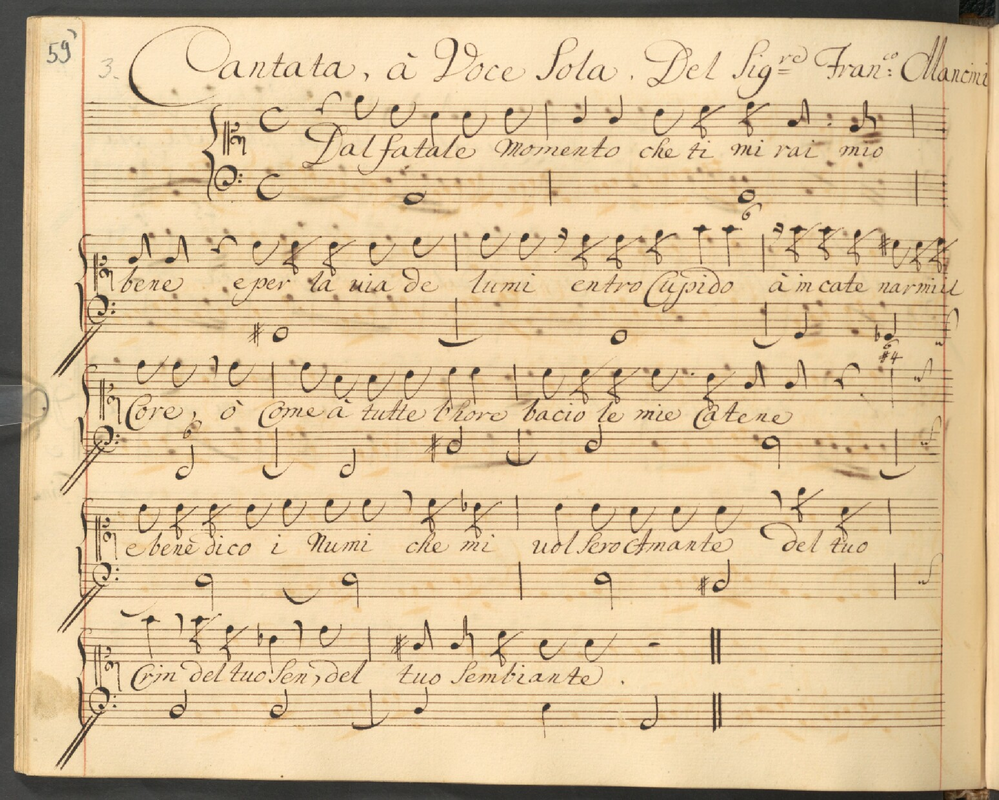 59
3. Cantata, à Voce Sola. Del Sig.re Fran.co Mancini
Dal fatale momento che ti mirai mio
bene e per la uia de lumi entro Cupido à incatenarmi il
Core, ò Come à tutte l'hore bacio le mie Catene
e benedico i Numi che mi uolsero Amante del tuo
Crin del tuo Sen, del tuo Sembiante.